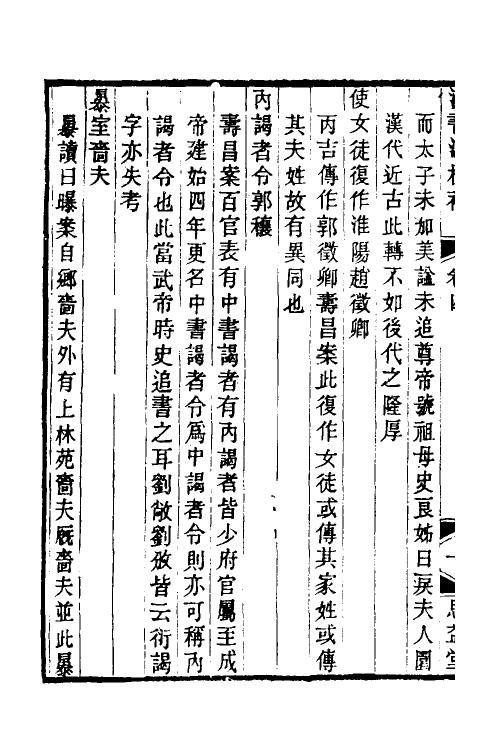 而太子未加美謚未追尊帝號祖母史良娣曰戾夫人園
漢代近古此轉不如後代之隆厚
使女徒復作淮陽趙徵卿
丙吉傳作郭徵卿壽昌案此復作女徒或傳其家姓或傳
其夫姓故有異同也
內謁者令郭穰
壽昌案百官表有中書謁者有內謁者皆少府官屬至成
帝建始四年更名中書謁者令為中謁者令則亦可稱內
謁者令也此當武帝時史追書之耳劉敞劉攽皆云衍謁
字亦失考
暴室嗇夫
暴讀曰曝案自鄉嗇夫外有上林苑嗇夫厩嗇夫並此暴